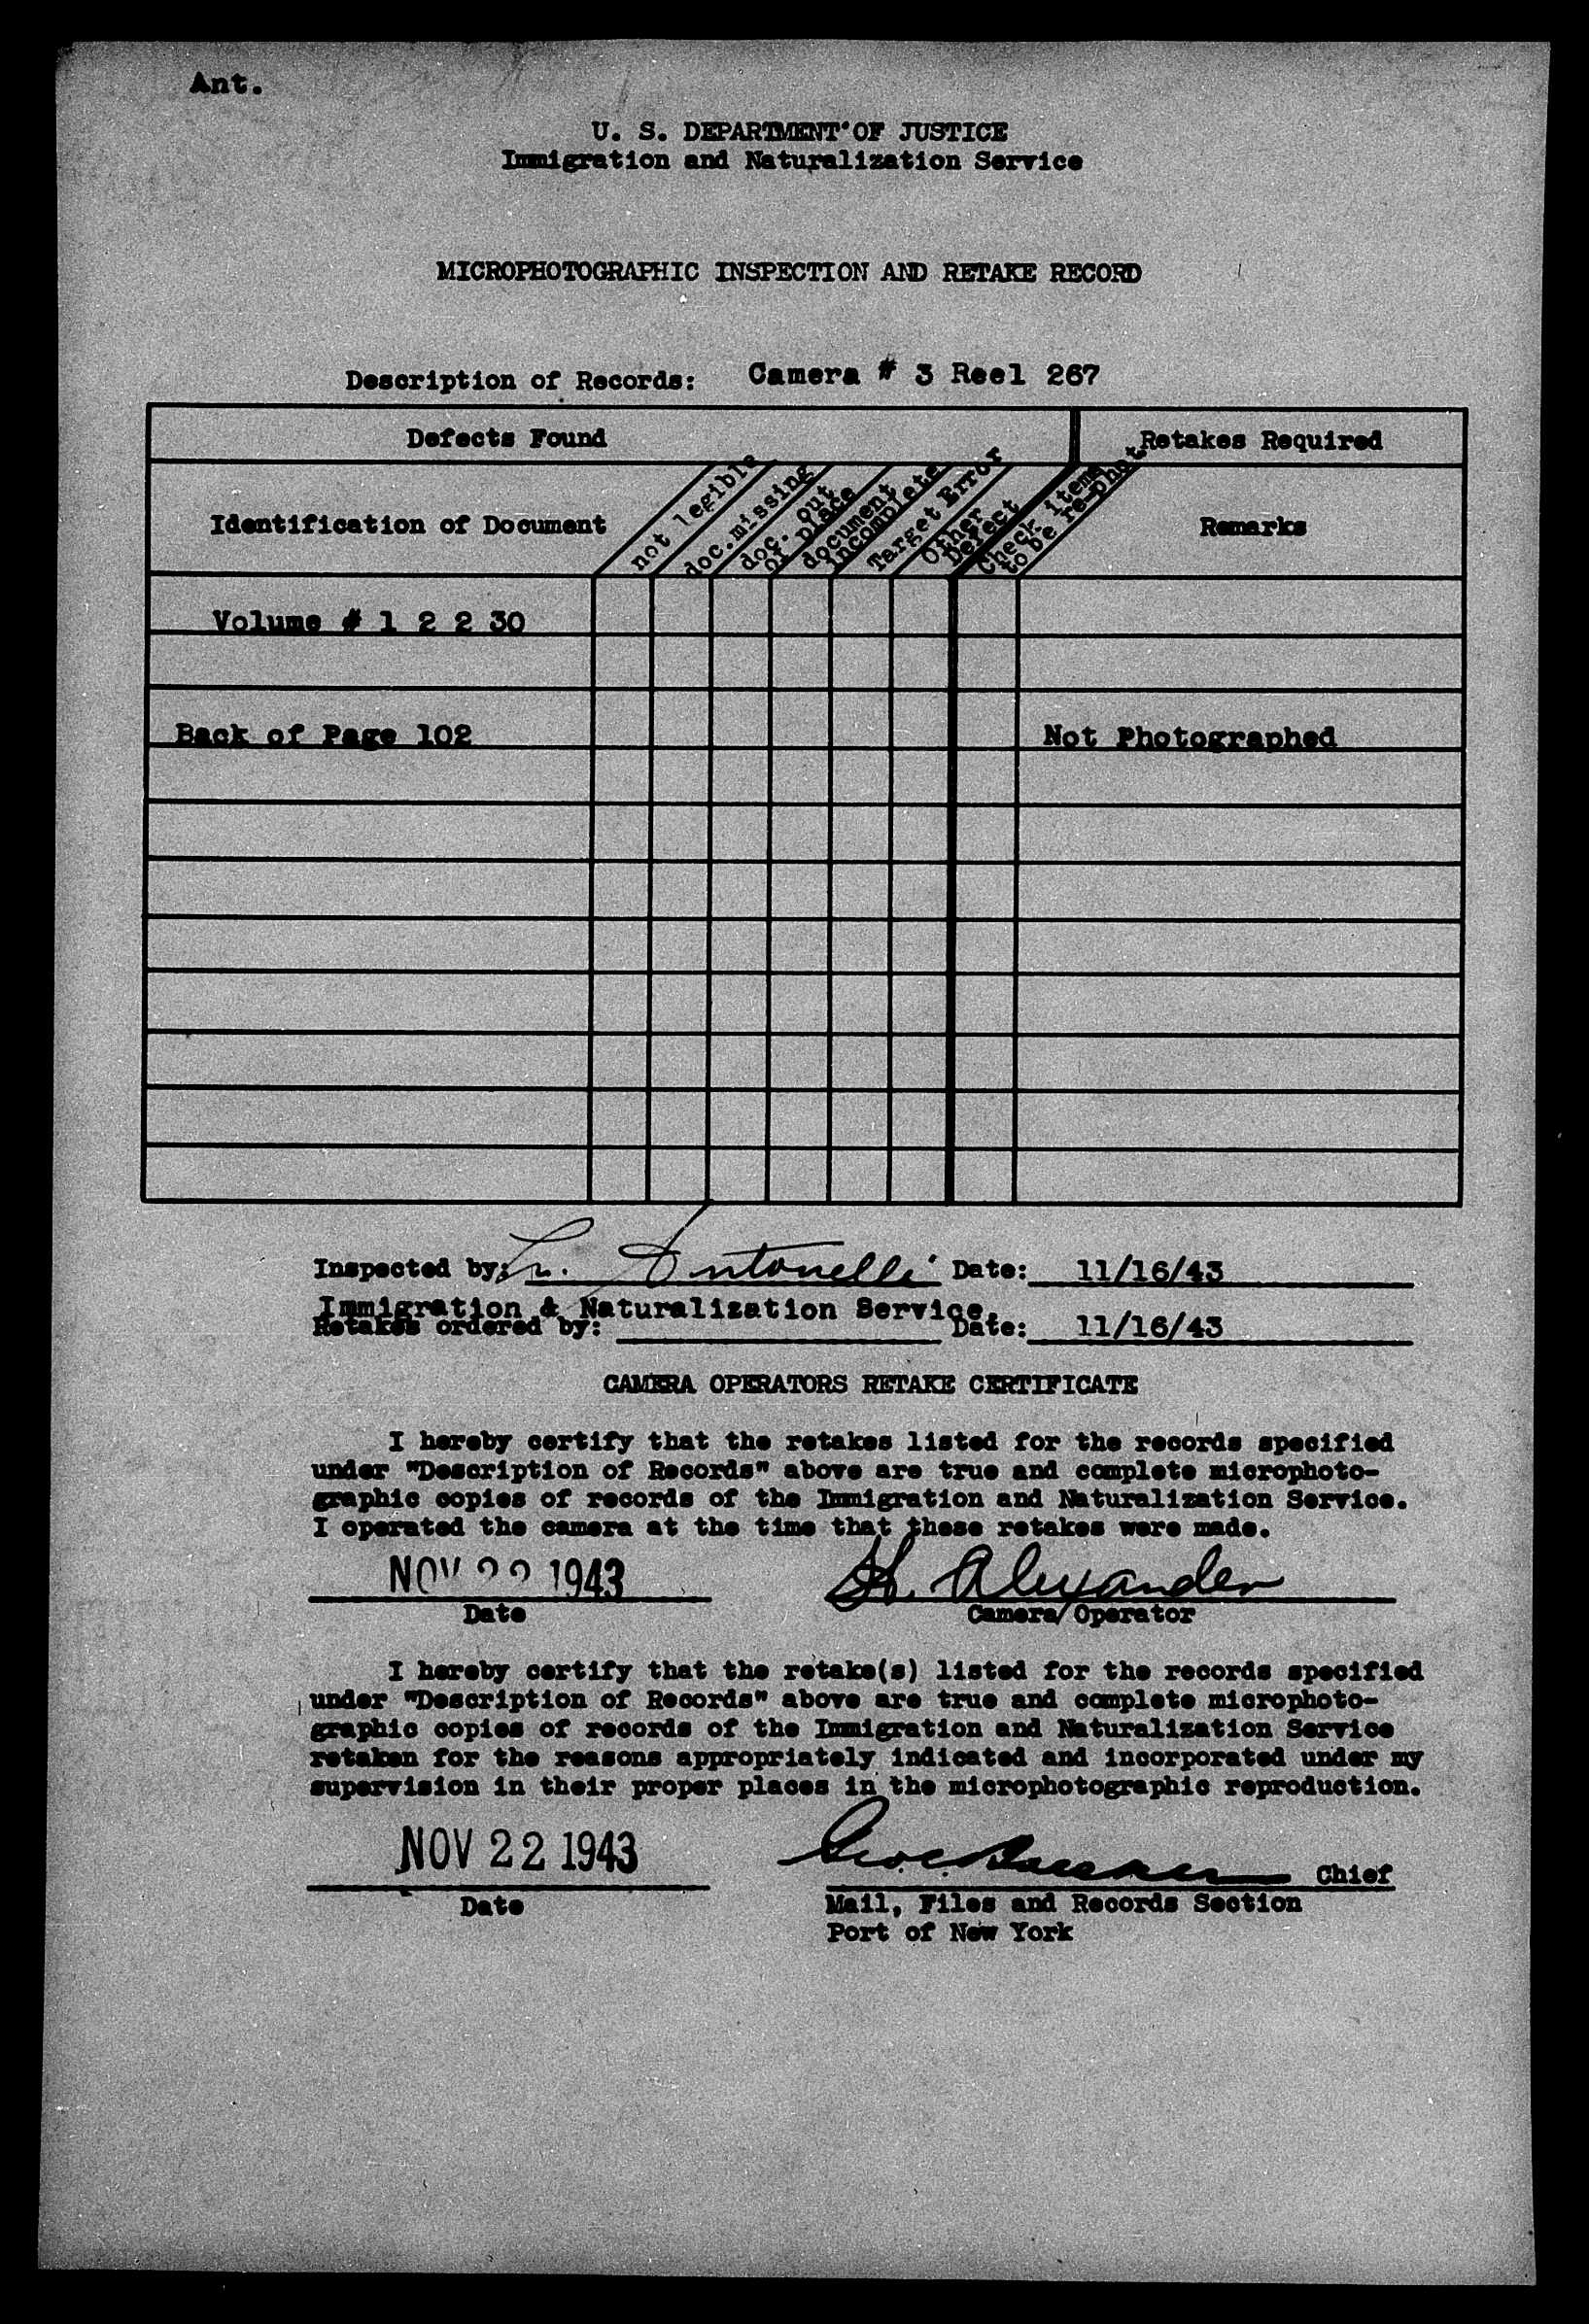 Ant.
U. S. DEPARTMENT OF JUSTICE
Immigration and Naturalization Service
MICROPHOTOGRAPHIC INSPECTION AND RETAKE RECORD
Description of Records: Camera # 3 Reel 267
Defects Found Retakes Required
Identification of Document
not legible
doc. missing
doc. out
of place
document
incomplete
Target Error
Other
Defect
Check items
to be re-phot.
Remarks
Volume # 1 2 2 30
Back of Page 102 Not Photographed
Inspected by: L. Antonelli Date: 11/16/43
Immigration & Naturalization Service.
Retakes ordered by: Date: 11/16/43
CAMERA OPERATORS RETAKE CERTIFICATE
I hereby certify that the retakes listed for the records specified
under "Description of Records" above are true and complete microphoto-
graphic copies of records of the Immigration and Naturalization Service.
I operated the camera at the time that these retakes were made.
NOV 22 1943 H. Alexander
Date Camera Operator
I hereby certify that the retake(s) listed for the records specified
under "Description of Records" above are true and complete microphoto-
graphic copies of records of the Immigration and Naturalization Service
retaken for the reasons appropriately indicated and incorporated under my
supervision in their proper places in the microphotographic reproduction.
NOV 22 1943 Chief
Date Mail, Files and Records Section
Port of New York